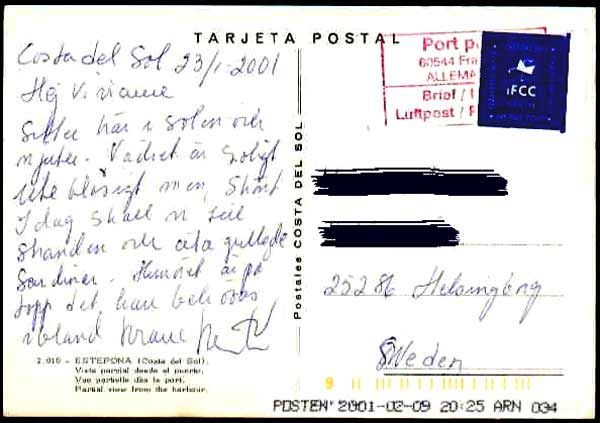 TARJETA POSTAL
Costa del Sol 23/1-2001
Hej Vivianne
Sitter här i solen och
njuter. Vädret är soligt
lite blåsigt men skönt
I dag skall vi till
stranden och äta grillade
Sardiner. Humöret är på
topp det kan behövas
ibland Kram
2.010 - ESTEPONA (Costa del Sol).
Vista parcial desde el puerto.
Vue partielle dès le port.
Partial view from the harbour.
Postales COSTA DEL SOL
Port p
60544 Fra
ALLEMA
Brief /
Luftpost /
iFCC
25286 Helsingborg
Sweden
9
POSTEN 2001-02-09 20:25 ARN 034